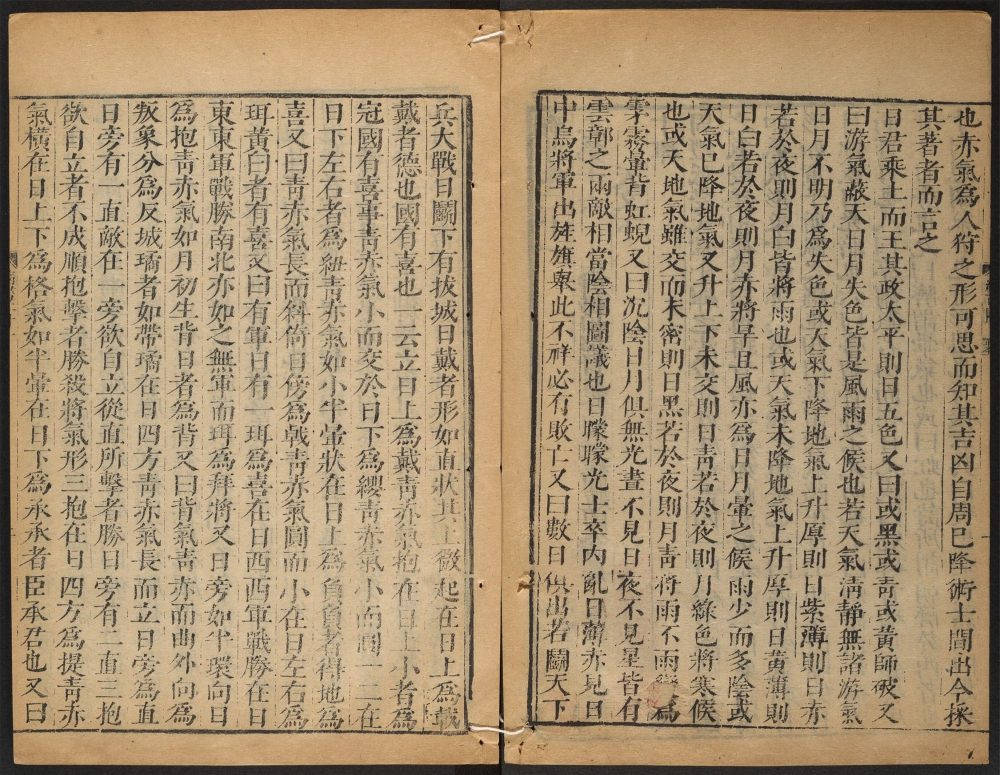 也赤氣爲人符之形可思而知其吉凶自周已降術士間出今採
其著者而言之
日君乘土而王其政太平則日五色又曰或黑或靑或黃師破又
曰游氣蔽天日月失色皆是風雨之候也若天氣淸靜無諸游氣
日月不明乃爲失色或天氣下降地氣上升厚則日紫薄則日赤
若於夜則月白皆將雨也或天氣未降地氣上升厚則日黃薄則
日白若於夜則月赤將旱且風亦爲日月暈之候雨少而多陰或
天氣已降地氣又升上下未交則日靑若於夜則月綠色將寒候
也或天地氣雖交而未密則日黑若於夜則月靑將雨不雨 爲
雺霧暈背虹蜺又曰沉陰日月俱無光晝不見日夜不見星皆有
雲鄣之兩敵相當陰相圖議也日曚曚光士卒內亂日薄赤見日
中烏將軍出旌旗舉此不祥必有敗亡又曰數日俱出若鬭天下
兵大戰日鬭下有拔城日戴者形如直狀其上微起在日上爲戴
戴者德也國有喜也一云立日上爲戴靑赤氣抱在日上小者爲
冠國有喜事靑赤氣小而交於日下爲纓靑赤氣小而圓一二在
日下左右者爲紐靑赤氣如小半暈狀在日上爲負負者得地爲
喜又曰靑赤氣長而斜倚日傍爲戟靑赤氣圓而小在日左右爲
珥黃白者有喜又曰有軍日有一珥爲喜在日西西軍戰勝在日
東東軍戰勝南北亦如之無軍而珥爲拜將又曰旁如半環向日
爲抱靑赤氣如月初生背日者爲背又曰背氣靑赤而曲外向爲
叛象分爲反城璚者如帶璚在日四方靑赤氣長而立日旁爲直
日旁有一直敵在一旁欲自立從直所擊者勝日旁有二直三抱
欲自立者不成順抱擊者勝殺將氣形三抱在日四方爲提靑赤
氣橫在日上下爲格氣如半暈在日下爲承承者臣承君也又曰